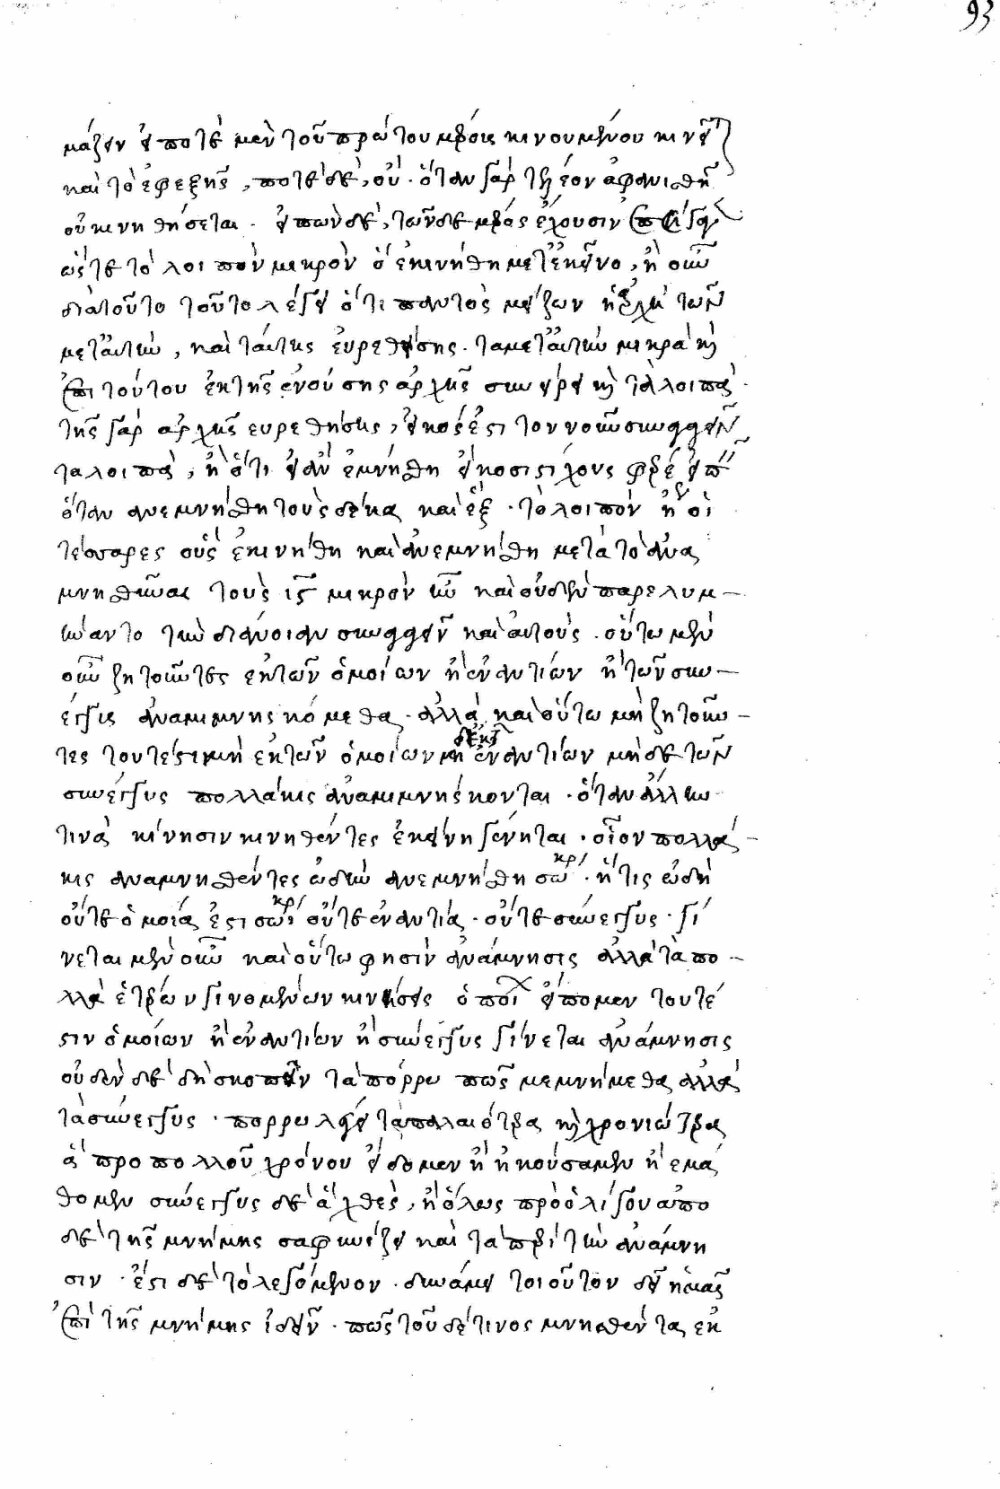 93
μάζειν εἰ ποτὲ μὲν τοῦ πρώτου μέρους κινουμένου κινεῖ
καὶ τὸ ἐφεξῆς, ποτὲ δὲ, οὔ. ὅταν γὰρ τελέον ἀφανισθῆ
οὐ κινηθήσεται. εἰπὼν δὲ, τῶνδε μέρος ἔχουσιν ἐπάγει
ὥστε τὸ λοιπὸν μικρὸν ὃ ἐκινήθη μετ' ἐκεῖνο, ἢ οὖν
διὰ τοῦτο τοῦτο λέγει ὅτι παντὸς μείζων ἡ ἀρχὴ τῶν
μετ' αὐτὴν, καὶ ταύτης εὑρεθείσης. τὰ μετ' αὐτὴν μικρὰ καὶ
ἐπὶ τούτου ἐκ τῆς ἐνούσης ἀρχῆς συνείρει καὶ τὰ λοιπά.
τῆς γὰρ ἀρχῆς εὑρεθείσης, εἰκός ἐστι τὸν νοῦν συνάψαι
τὰ λοιπὰ, ἢ ὅτι εἰ ἂν ἐμνήσθη εἴκοσι στίχους φέρε εἰπεῖν
ὅταν ἀνεμνήσθη τοὺς δέκα καὶ ἓξ. τὸ λοιπὸν ἤγουν οἱ
τέσσαρες οὓς ἐκινήθη καὶ ἀνεμνήσθη μετὰ τὸ ἀνα
μνησθῆναι τοὺς ιϛ μικρὸν ἦν καὶ οὐδὲν παρελυμ-
ήναντο τὴν διάνοιαν συνάψαι καὶ αὐτούς. οὕτω μὲν
οὖν ζητοῦντες ἐκ τῶν ὁμοίων ἢ ἐναντίων ἢ τῶν συν-
έγγυς ἀναμιμνησκόμεθα. ἀλλὰ καὶ οὕτω μὴ ζητοῦν-
τες τουτέστι μὴ ἐκ τῶν ὁμοίων μηδὲ ἐκ τῶν ἐναντίων μηδὲ τῶν
συνέγγυς πολλάκις ἀναμιμνήσκονται. ὅταν ἄλλην
τινὰ κίνησιν κινηθέντες ἐκείνη γένηται. οἷον πολλά-
κις ἀναμνησθέντες ὠδὴν ἀνεμνήσθη σωκρ. ἥτις ὠδὴ
οὔτε ὁμοία ἐστι σωκρ οὔτε ἐναντία. οὔτε συνέγγυς. γί
νεται μὲν οὖν καὶ οὕτω φησὶν ἀνάμνησις ἀλλὰ τὰ πο-
λλὰ ἑτέρων γινομένων κινήσεις ὁποῖ εἴπομεν τουτέ
στιν ὁμοίων ἢ ἐναντίων ἢ συνέγγυς γίνεται ἀνάμνησις
οὐδὲν δὲ δεῖ σκοπεῖν τὰ πόρρω πῶς μεμνήμεθα ἀλλὰ
τὰ συνέγγυς. πόρρω λέγει τὰ παλαιότερα καὶ χρονιώτερα
ἃ πρὸ πολλοῦ χρόνου εἴδομεν ἢ ἠκούσαμεν ἢ ἐμά
θομεν συνέγγυς δὲ ἃ χθὲς, ἢ ὅλως πρὸ ὀλίγου ἀπὸ
δὲ τῆς μνήμης σαφηνίζει καὶ τὰ περὶ τὴν ἀνάμνη
σιν. ἔστι δὲ τὸ λεγόμενον. δυνάμει τοιοῦτον δεῖ ἡμᾶς
ἐπὶ τῆς μνήμης ἰδεῖν. πῶς τοῦδέ τινος μνησθέντα ἐκ